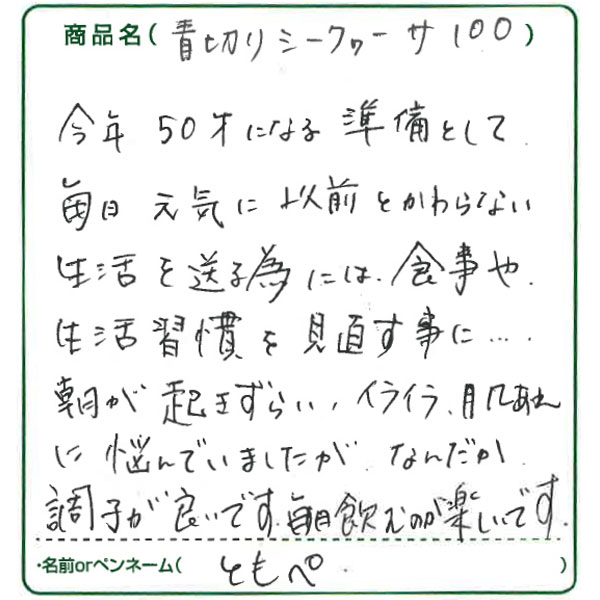 商品名(青切りシークヮーサー100)
今年50才になる準備として
毎日元気に以前とかわらない
生活を送る為には、食事や
生活習慣を見直す事に….
朝が起きずらい,イライラ、肌あれ
に悩んでいましたが なんだか
調子が良いです。毎日飲むのが楽しいです。
・名前orペンネーム(ともぺ.)